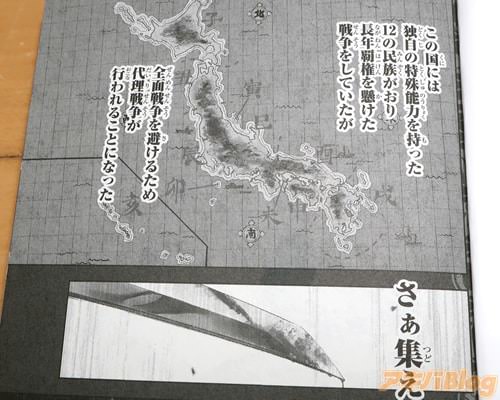 この国には
独自の特殊能力を持った
12の民族がおり
長年覇権を懸けた
戦争をしていたが
全面戦争を避けるため
代理戦争が
行われることになった
子
北
寅
巳
酉
戌
申
未
卯
辰
亥
南
さぁ集え
アキバBlog